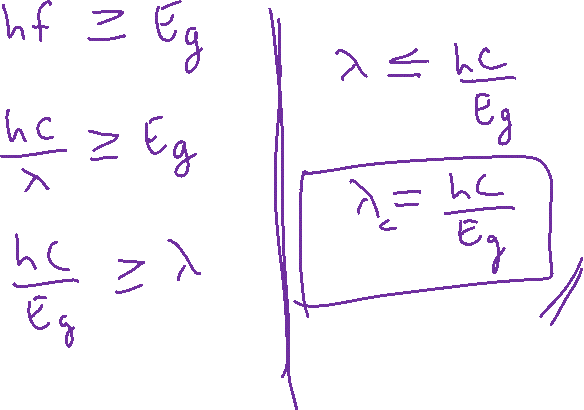 hf ≥ E_g
hc/λ ≥ E_g
hc/E_g ≥ λ
λ ≤ hc/E_g
λ_c = hc/E_g